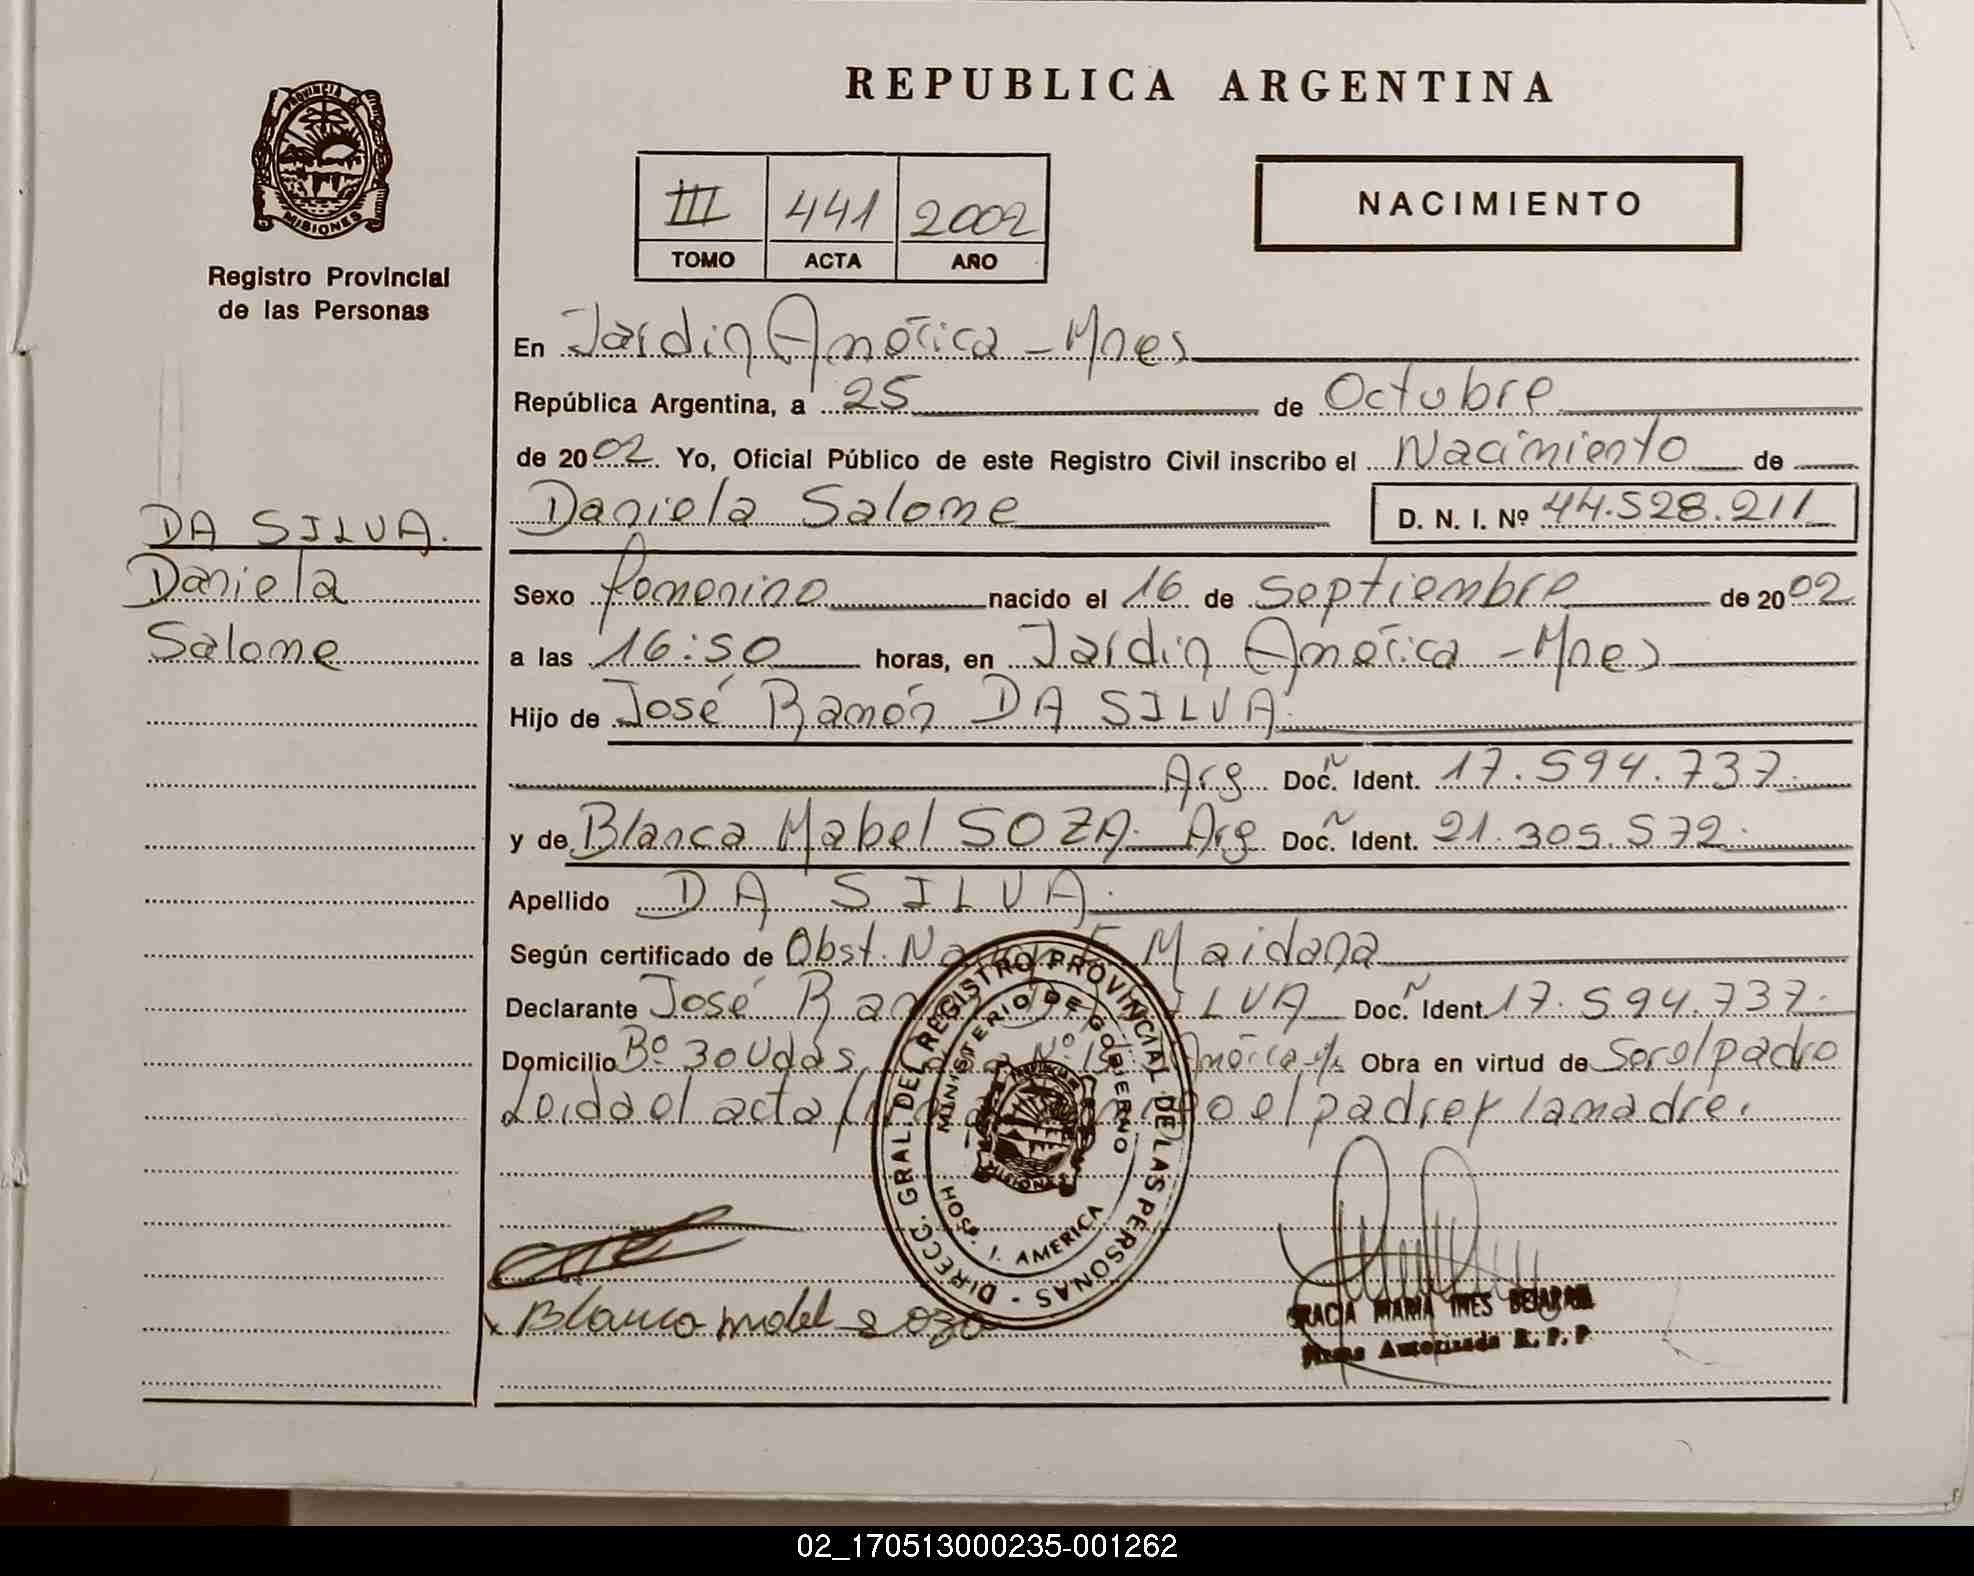 REPUBLICA ARGENTINA
PROVINCIA DE
MISIONES
Registro Provincial
de las Personas
III 441 2002
TOMO ACTA AÑO
NACIMIENTO
En Jardin América - Mnes
República Argentina, a 25 de Octubre
de 2002 Yo, Oficial Público de este Registro Civil inscribo el Nacimiento de
Daniela Salome D. N. I. Nº 44.528.211
DA SILVA.
Daniela
Salome
Sexo femenino nacido el 16 de septiembre de 2002
a las 16:50 horas, en Jardin América - Mnes
Hijo de José Ramón DA SILVA.
Arg Doc. Ident. 17.594.737.
y de Blanca Mabel SOZA. Arg Doc. Ident. 21.305.572.
Apellido DA SILVA.
Según certificado de Obst. Maidana
Declarante José SILVA Doc. Ident. 17.594.737.
Domicilio Bº 30 Vdas. Nº América Obra en virtud de Ser el padre
Leida el acta el padre y la madre.
DIRECC. GRAL. DEL REGISTRO PROVINCIAL DE LAS PERSONAS -
MINISTERIO DE GOBIERNO
MISIONES
HOSP. J. AMERICA
Blanca mabel soza
GRACIA MARIA INES BEJARANO
Firma Autorizada R. P. P
02_170513000235-001262